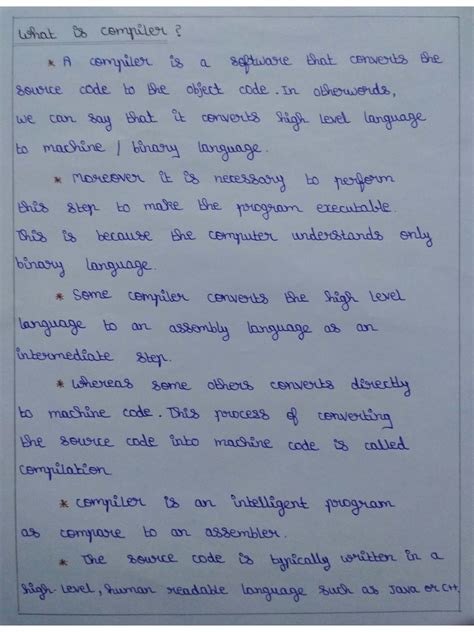 What is compiler?
* A compiler is a software that converts the
source code to the object code. In otherwords,
we can say that it converts high level language
to machine / binary language.
* Moreover it is necessary to perform
this step to make the program executable.
This is because the computer understands only
binary language.
* Some compiler converts the high level
language to an assembly language as an
intermediate step.
* Whereas some others converts directly
to machine code. This process of converting
the source code into machine code is called
compilation
* Compiler is an intelligent program
as compare to an assembler.
* The source code is typically written in a
high-level, human readable language such as Java or C++.